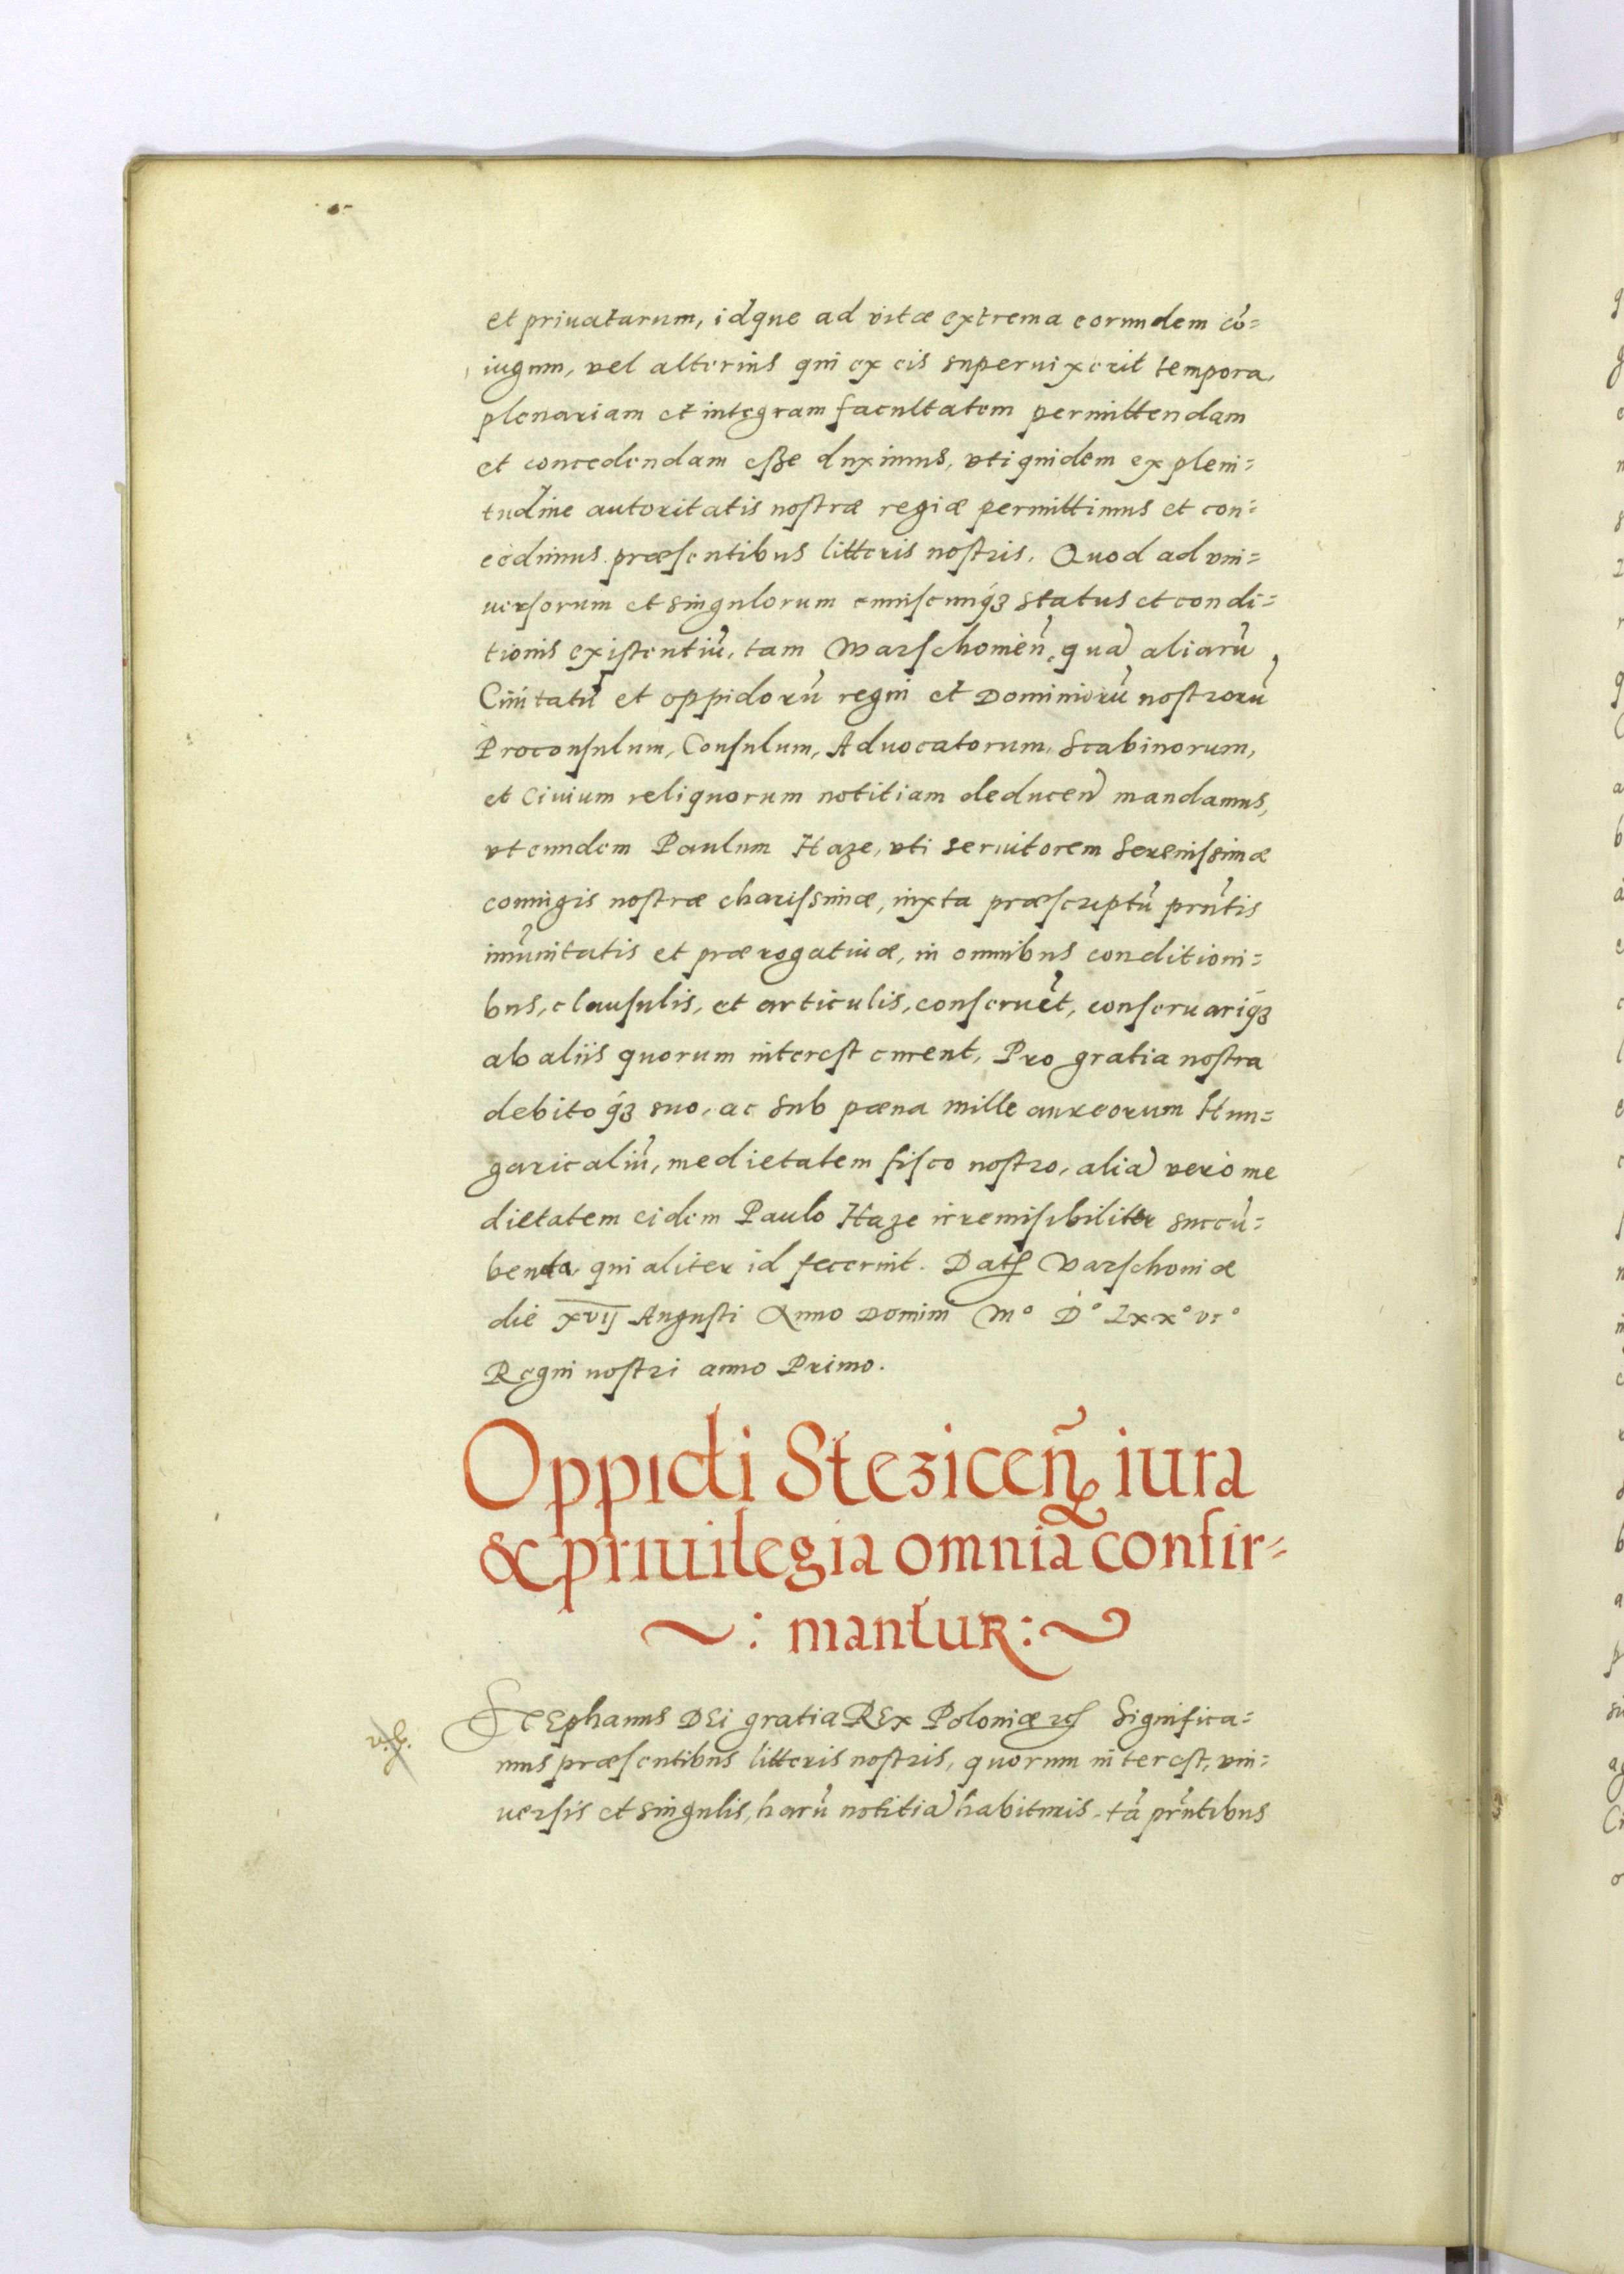 et priuatarum, idque ad vitæ extrema eorundem cō=
iugum, vel alterius qui ex eis superuixerit tempora,
plenariam et integram facultatem permittendam
et concedendam eße duximus, vti quidem ex pleni=
tudine autoritatis nostræ regiæ permittimus et con=
cedimus præsentibus litteris nostris. Quod ad vni=
uersorum et singulorum cuiuscunqȝ status et condi=
tionis existentiū, tam Warschouieñ, quā aliarū
Ciuitatū et oppidorū regni et Dominiorū nostrorū
Proconsulum, Consulum, Aduocatorum, Scabinorum,
et Ciuium reliquorum notitiam deduceñ mandamus,
vt eundem Paulum Haze, vti seruitorem Serenissimæ
coniugis nostræ charissimæ, iuxta præscriptū pñtis
imūnitatis et prærogatiuæ, in omnibus conditioni=
bus, clausulis, et articulis, conseruēt, conseruariqȝ
ab aliis quorum interest curent, Pro gratia nostra
debitoqȝ suo, ac sub pœna mille aureorum Hun=
garicaliū, medietatem fisco nostro, aliā verò me
dietatem eidem Paulo Haze irremisibiliter succū=
benda, qui aliter id fecerint. Datꝭ Varschouiæ
die xvij Augusti Anno Domini Mº Dº Lxxº viº
Regni nostri anno Primo.
Oppidi Stezicen̄ iura
& priuilegia omnia confir=
~: mantur: ~
Stephanus DEi gratia REx Poloniæ ꝛcꝭ Significa=
mus præsentibus litteris nostris, quorum interest, vni=
uersis et singulis, harū notitiā habituris, tā prñtibus